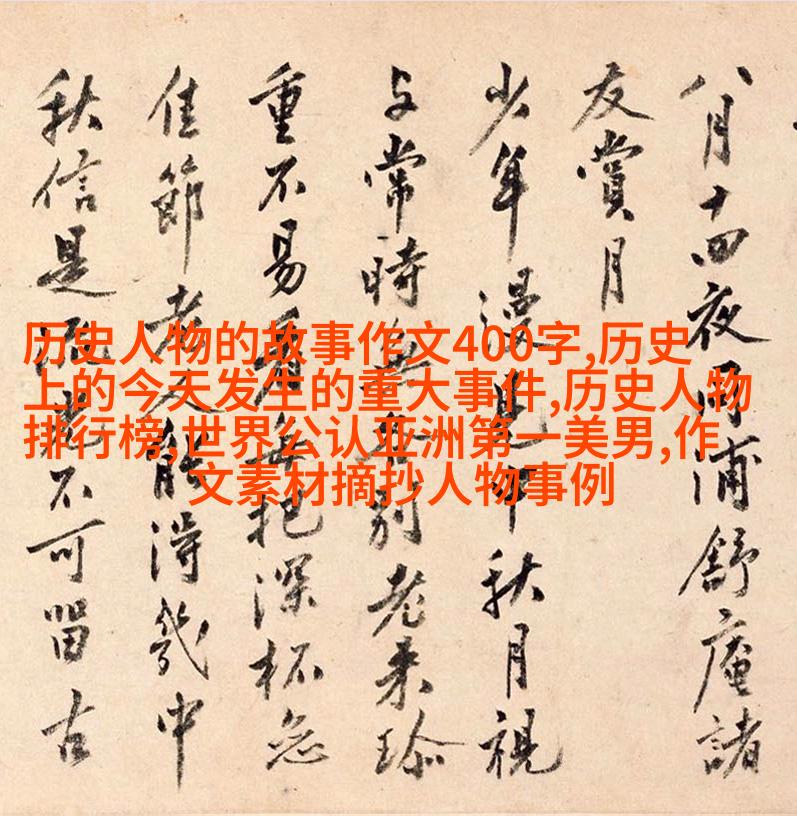 八月十四夜浦舒庵諸
友賞月
少年漫見中秋月視
与常時無別老来珍
重不易看把深杯
佳節老人能得幾中
秋信是不可留古
历史人物的故事作文400字,历史
上的今天发生的重大事件,历史人物
排行榜,世界公认亚洲第一美男,作
文素材摘抄人物事例